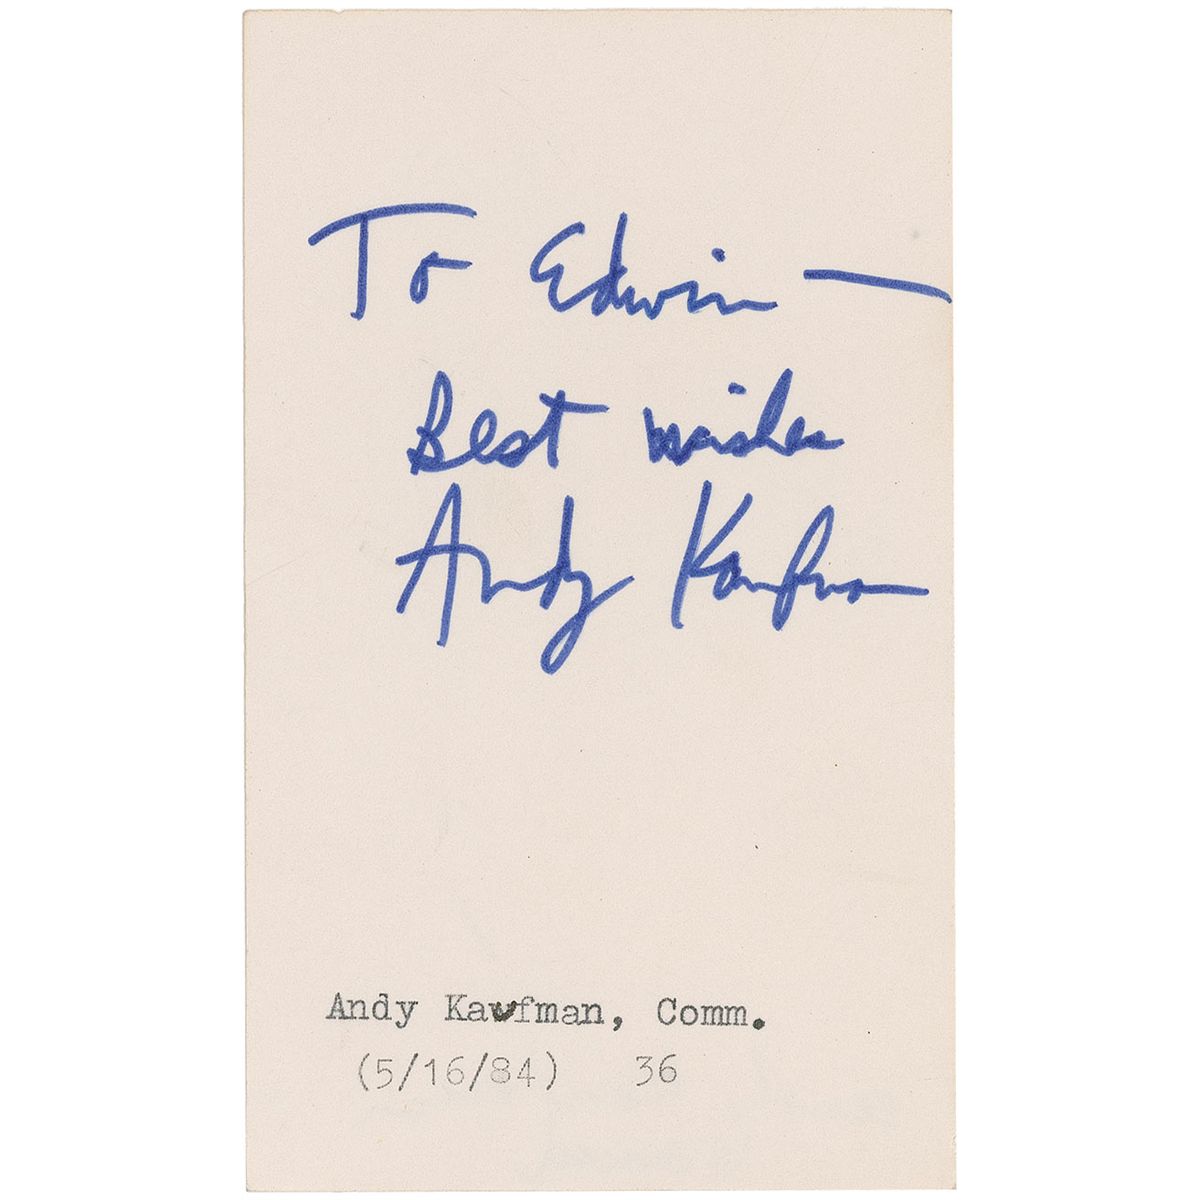 To Edwin —
Best wishes
Andy Kaufman
Andy Kaufman, Comm.
(5/16/84) 36